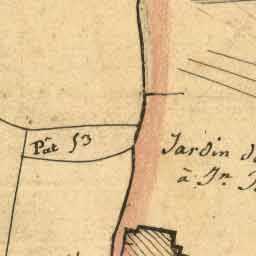 Pât 53
Jardin d
à Jn